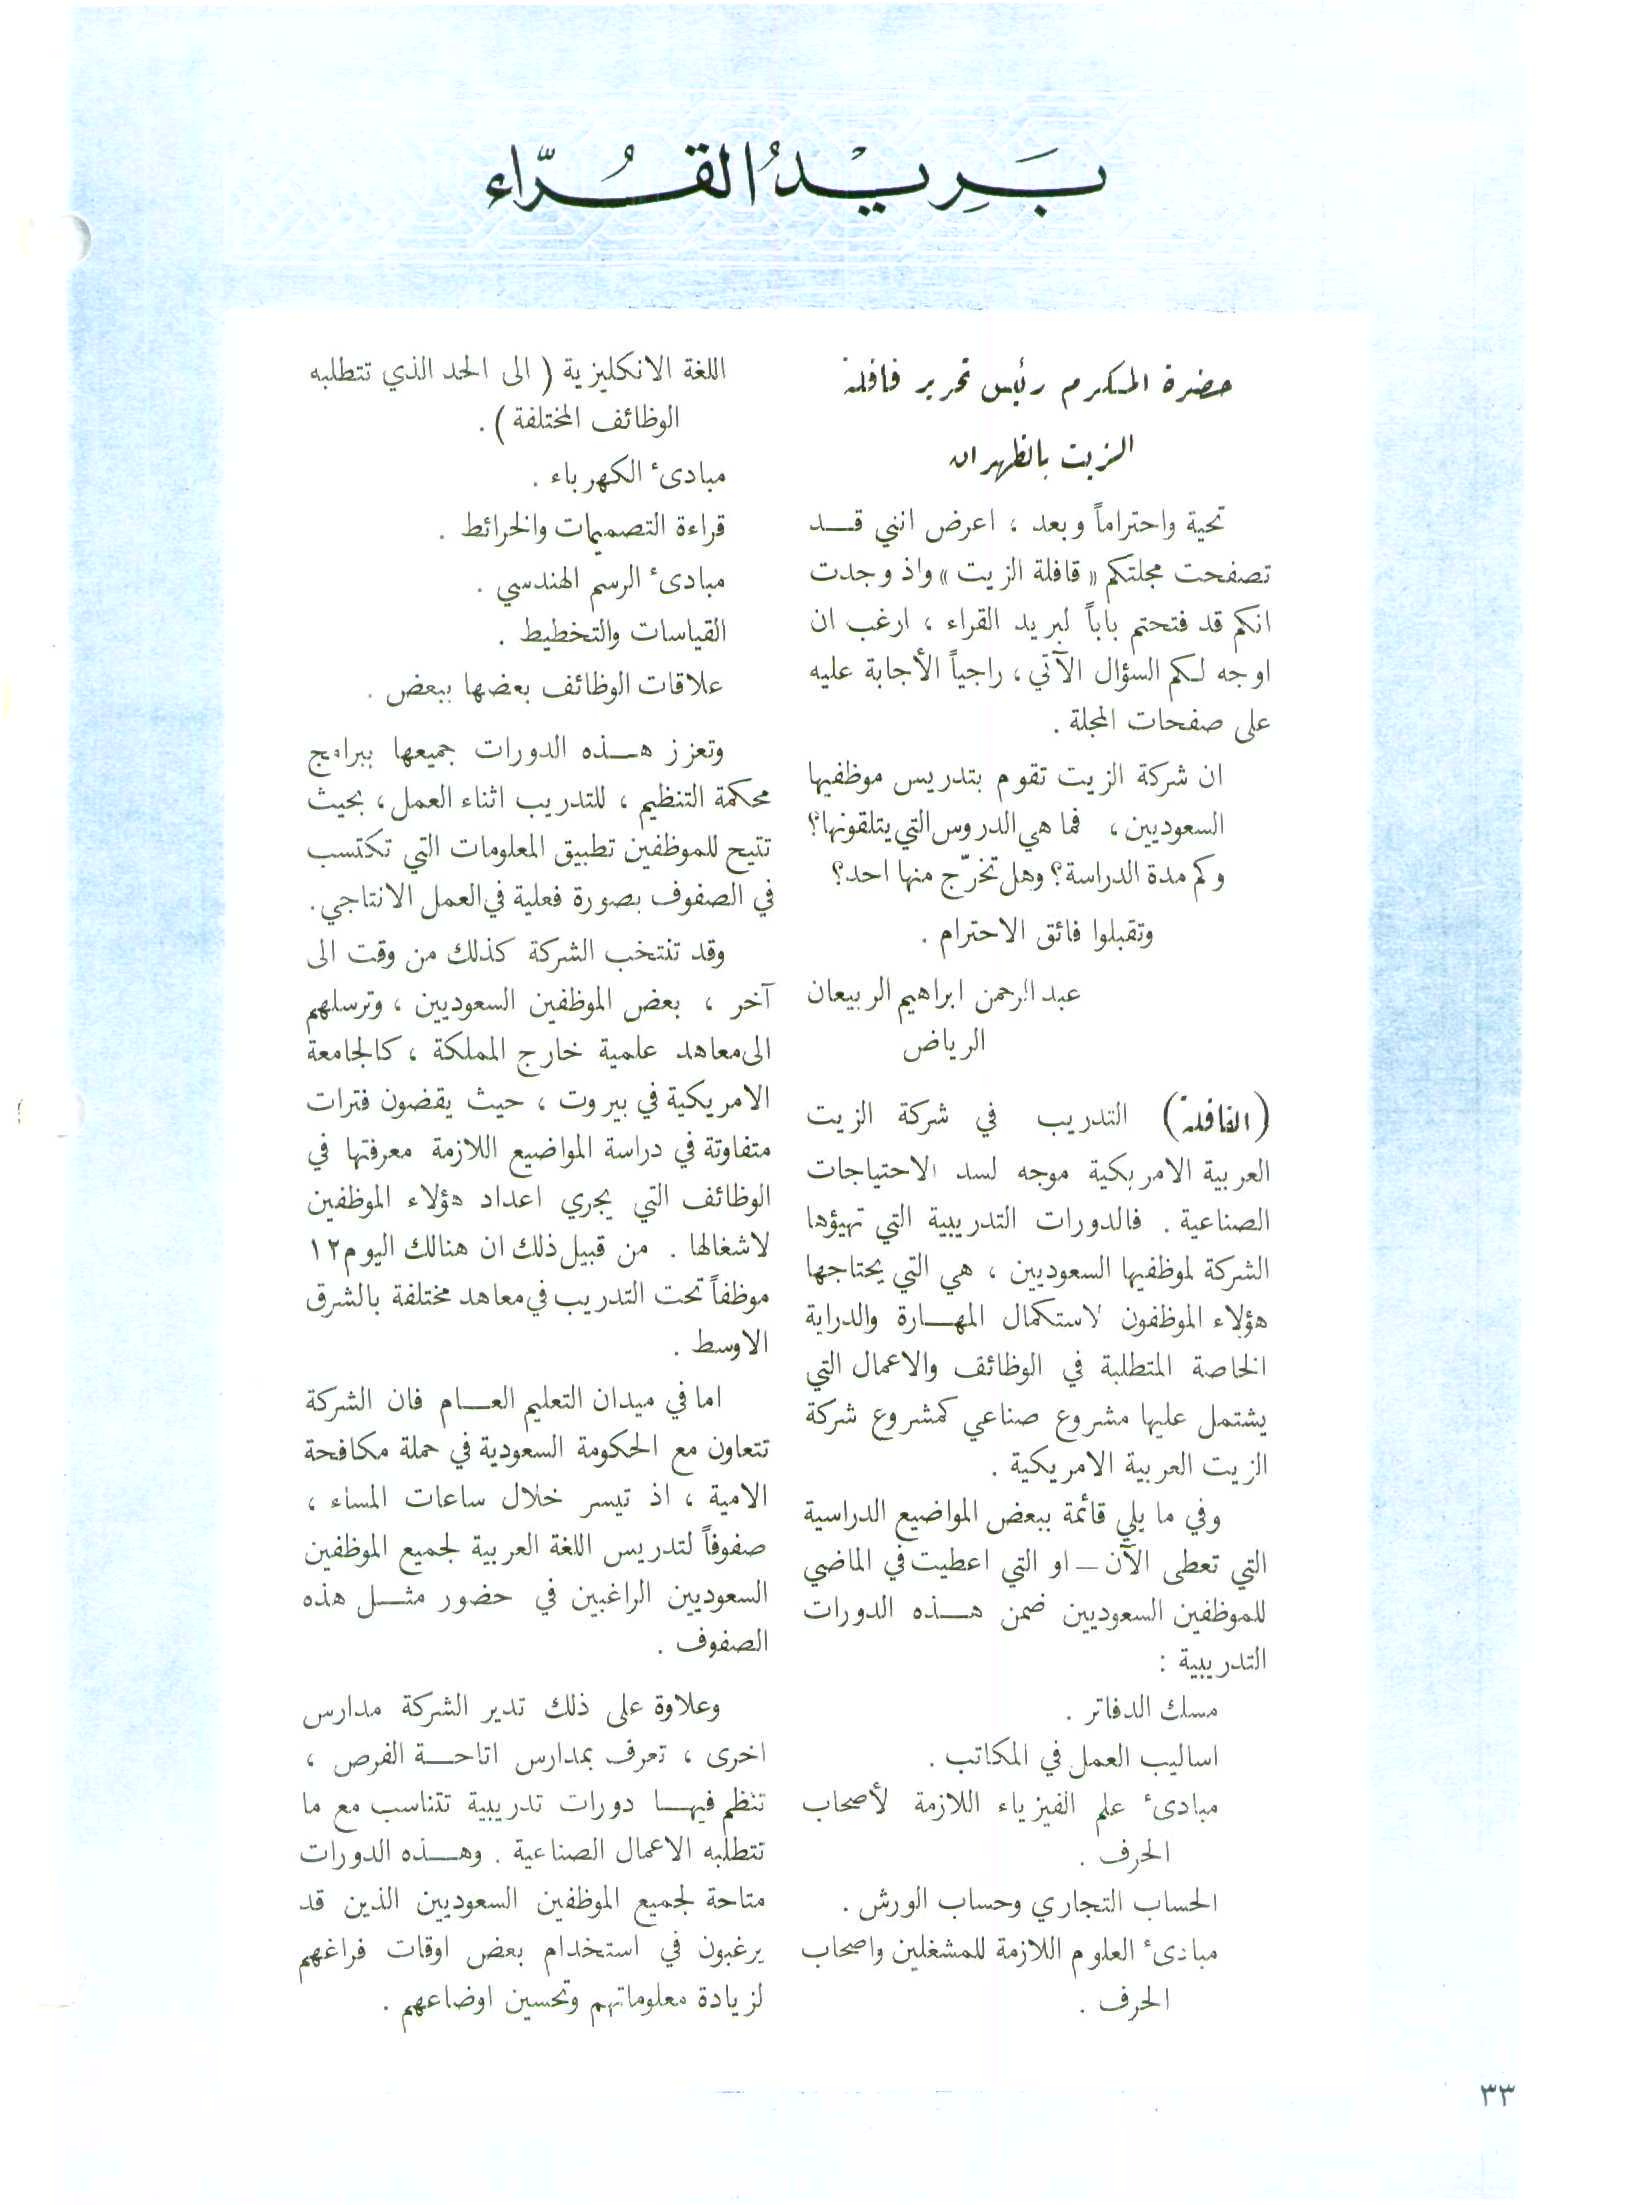 بَرِيْدُ القُرّاء
حضرة المكرم رئيس تحرير قافلة
الزيت بالظهران
تحية واحتراماً وبعد ، اعرض انني قد
تصفحت مجلتكم « قافلة الزيت » واذ وجدت
انكم قد فتحتم باباً لبريد القراء ، ارغب ان
اوجه لكم السؤال الآتي ، راجياً الأجابة عليه
على صفحات المجلة .
ان شركة الزيت تقوم بتدريس موظفيها
السعوديين ، فما هي الدروس التي يتلقونها؟
وكم مدة الدراسة؟ وهل تخرّج منها احد؟
وتقبلوا فائق الاحترام .
عبد الرحمن ابراهيم الربيعان
الرياض
(القافلة) التدريب في شركة الزيت
العربية الامريكية موجه لسد الاحتياجات
الصناعية . فالدورات التدريبية التي تهيؤها
الشركة لموظفيها السعوديين ، هي التي يحتاجها
هؤلاء الموظفون لاستكمال المهارة والدراية
الخاصة المتطلبة في الوظائف والاعمال التي
يشتمل عليها مشروع صناعي كمشروع شركة
الزيت العربية الامريكية .
وفي ما يلي قائمة ببعض المواضيع الدراسية
التي تعطى الآن – او التي اعطيت في الماضي
للموظفين السعوديين ضمن هذه الدورات
التدريبية :
مسك الدفاتر .
اساليب العمل في المكاتب .
مبادىء علم الفيزياء اللازمة لأصحاب
الحرف .
الحساب التجاري وحساب الورش .
مبادىء العلوم اللازمة للمشغلين واصحاب
الحرف .
اللغة الانكليزية ( الى الحد الذي تتطلبه
الوظائف المختلفة ) .
مبادىء الكهرباء .
قراءة التصميمات والخرائط .
مبادىء الرسم الهندسي .
القياسات والتخطيط .
علاقات الوظائف بعضها ببعض .
وتعزز هذه الدورات جميعها ببرامج
محكمة التنظيم ، للتدريب اثناء العمل ، بحيث
تتيح للموظفين تطبيق المعلومات التي تكتسب
في الصفوف بصورة فعلية في العمل الانتاجي .
وقد تنتخب الشركة كذلك من وقت الى
آخر ، بعض الموظفين السعوديين ، وترسلهم
الى معاهد علمية خارج المملكة ، كالجامعة
الامريكية في بيروت ، حيث يقضون فترات
متفاوتة في دراسة المواضيع اللازمة معرفتها في
الوظائف التي يجري اعداد هؤلاء الموظفين
لاشغالها . من قبيل ذلك ان هنالك اليوم ١٢
موظفاً تحت التدريب في معاهد مختلفة بالشرق
الاوسط .
اما في ميدان التعليم العام فان الشركة
تتعاون مع الحكومة السعودية في حملة مكافحة
الامية ، اذ تيسر خلال ساعات المساء ،
صفوفاً لتدريس اللغة العربية لجميع الموظفين
السعوديين الراغبين في حضور مثل هذه
الصفوف .
وعلاوة على ذلك تدير الشركة مدارس
اخرى ، تعرف بمدارس اتاحة الفرص ،
تنظم فيها دورات تدريبية تتناسب مع ما
تتطلبه الاعمال الصناعية . وهذه الدورات
متاحة لجميع الموظفين السعوديين الذين قد
يرغبون في استخدام بعض اوقات فراغهم
لزيادة معلوماتهم وتحسين اوضاعهم .
٣٣